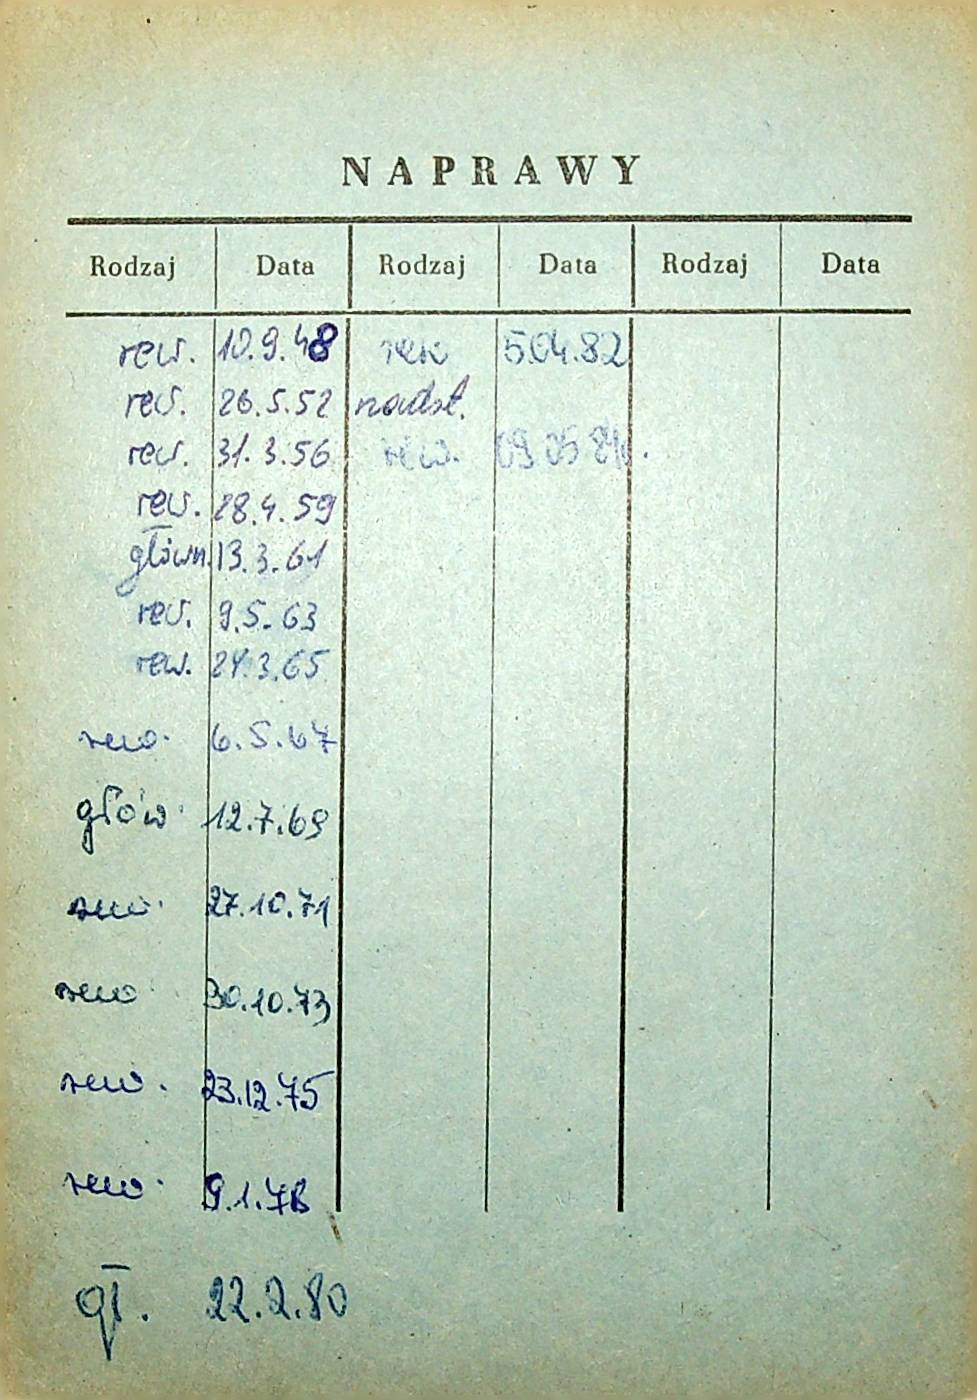 NAPRAWY
Rodzaj Data Rodzaj Data Rodzaj Data
rew. 10.9.48 rew 5.04.82
rew. 26.5.52 nadst.
rew. 31.3.56 rew. 09 05 84
rew. 28.4.59
główn. 13.3.61
rew. 9.5.63
rew. 24.3.65
rew. 6.5.67
głów. 12.7.69
rew. 27.10.71
rew 30.10.73
rew. 23.12.75
rew. 9.1.78
gł. 22.2.80